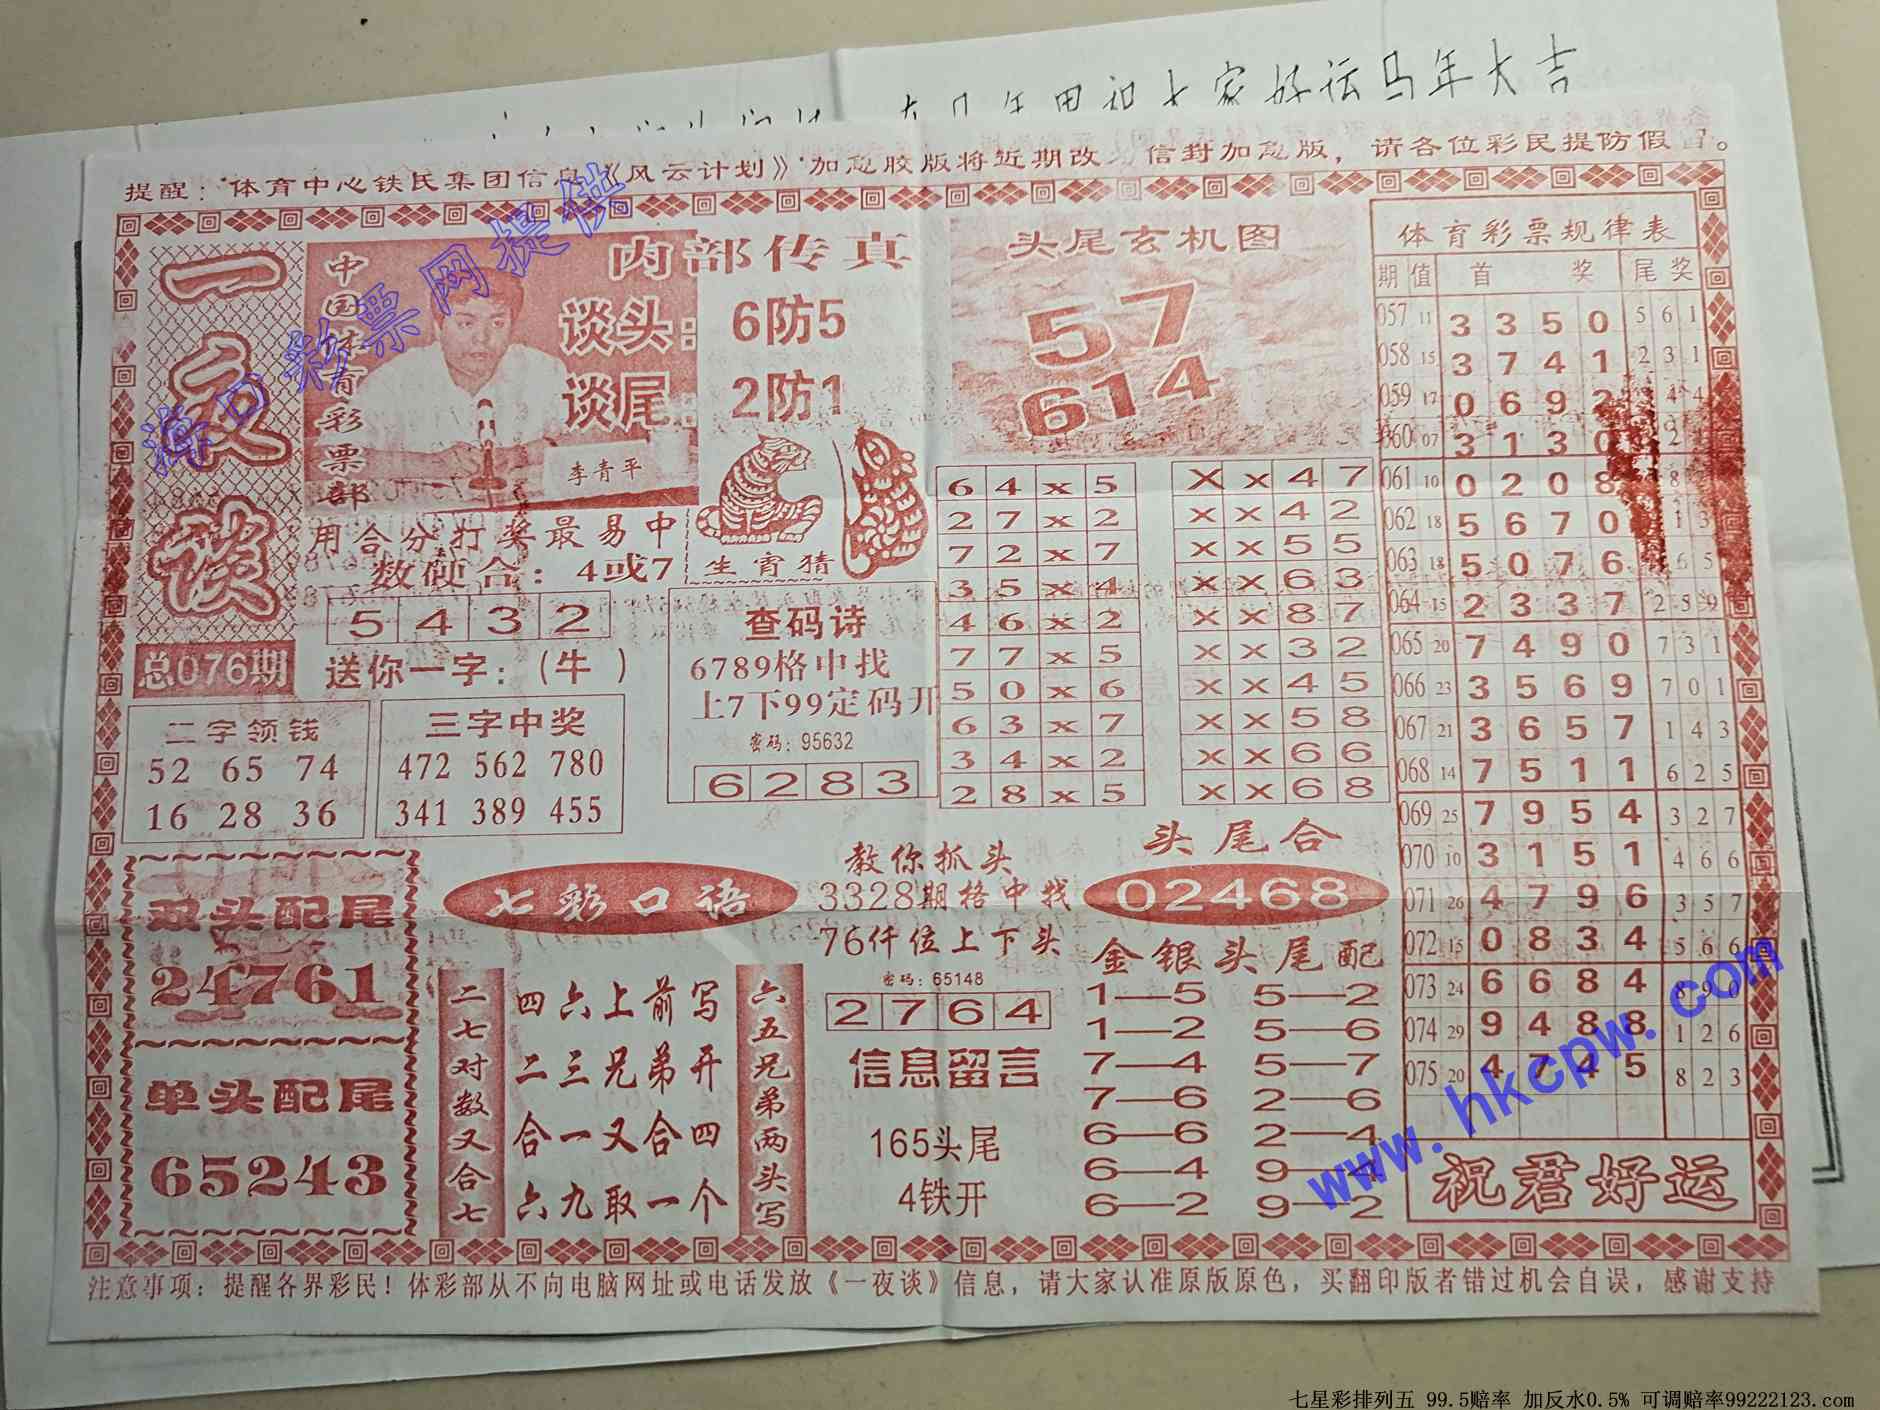 好运马年大吉
提醒："体育中心铁民集团信息《风云计划》"加急胶版将近期改 信封加急版，请各位彩民提防假冒。
一夜谈
总076期
中国体育彩票部
内部传真
谈头：6防5
谈尾：2防1
李青平
用合分打奖最易中
数硬合：4或7
5 4 3 2
送你一字：（牛）
生宵猜
二字领钱
52 65 74
16 28 36
三字中奖
472 562 780
341 389 455
查码诗
6789格中找
上7下99定码开
密码：95632
6 2 8 3
头尾玄机图
57
614
6 4 x 5
2 7 x 2
7 2 x 7
3 5 x 4
4 6 x 2
7 7 x 5
5 0 x 6
6 3 x 7
3 4 x 2
2 8 x 5
X x 4 7
X X 4 2
X X 5 5
X X 6 3
X X 8 7
X X 3 2
X X 4 5
X X 5 8
X X 6 6
X X 6 8
双头配尾
24761
单头配尾
65243
七彩口语
二七对数又合七
四六上前写
二三兄弟开
合一又合四
六九取一个
六五兄弟两头写
教你抓头
3328期格中找
76仟位上下头
密码：65148
2 7 6 4
信息留言
165头尾
4铁开
头尾合
02468
金银头尾配
1—5 5—2
1—2 5—6
7—4 5—7
7—6 2—6
6—6 2—4
6—4 9—4
6—2 9—2
体育彩票规律表
期 值 首 奖 尾 奖
057 11 3 3 5 0 5 6 1
058 15 3 7 4 1 2 3 1
059 17 0 6 9 2 4 4
060 07 3 1 3 0 2
061 10 0 2 0 8 8
062 18 5 6 7 0 1 3
063 18 5 0 7 6 6 5
064 15 2 3 3 7 2 5 9
065 20 7 4 9 0 7 3 1
066 23 3 5 6 9 7 0 1
067 21 3 6 5 7 1 4 3
068 14 7 5 1 1 6 2 5
069 25 7 9 5 4 3 2 7
070 10 3 1 5 1 4 6 6
071 26 4 7 9 6 3 5 7
072 15 0 8 3 4 5 6 6
073 24 6 6 8 4 8 9 0
074 29 9 4 8 8 1 2 6
075 20 4 7 4 5 8 2 3
祝君好运
注意事项：提醒各界彩民！体彩部从不向电脑网址或电话发放《一夜谈》信息，请大家认准原版原色，买翻印版者错过机会自误，感谢支持
海口彩票网提供
www.hkcpw.com
七星彩排列五 99.5赔率 加反水0.5% 可调赔率99222123.com